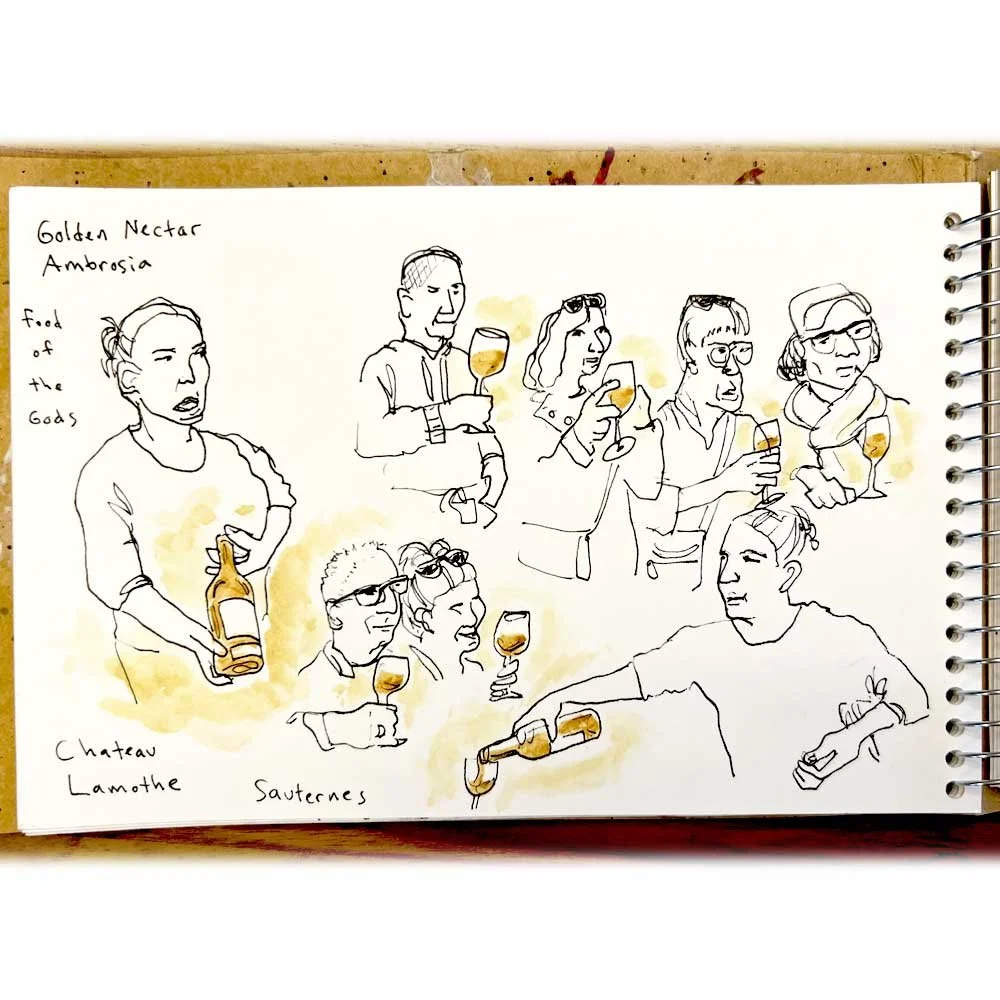 Golden Nectar
Ambrosia
food
of
the
Gods
Chateau
Lamothe
Sauternes